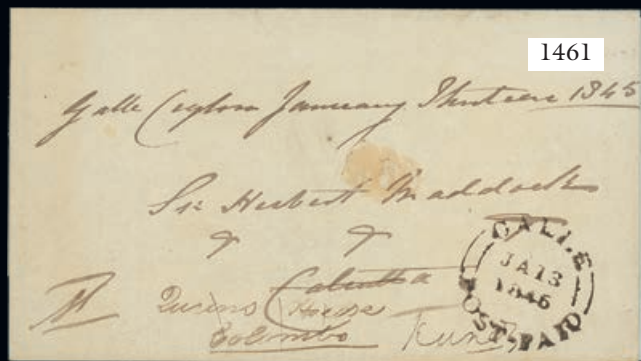 1461
Galle Ceylon January Thirteen 1845
Sir Herbert Maddock
Calcutta
Queens House
Colombo
GALLE
JA 13
1846
POST-PAID